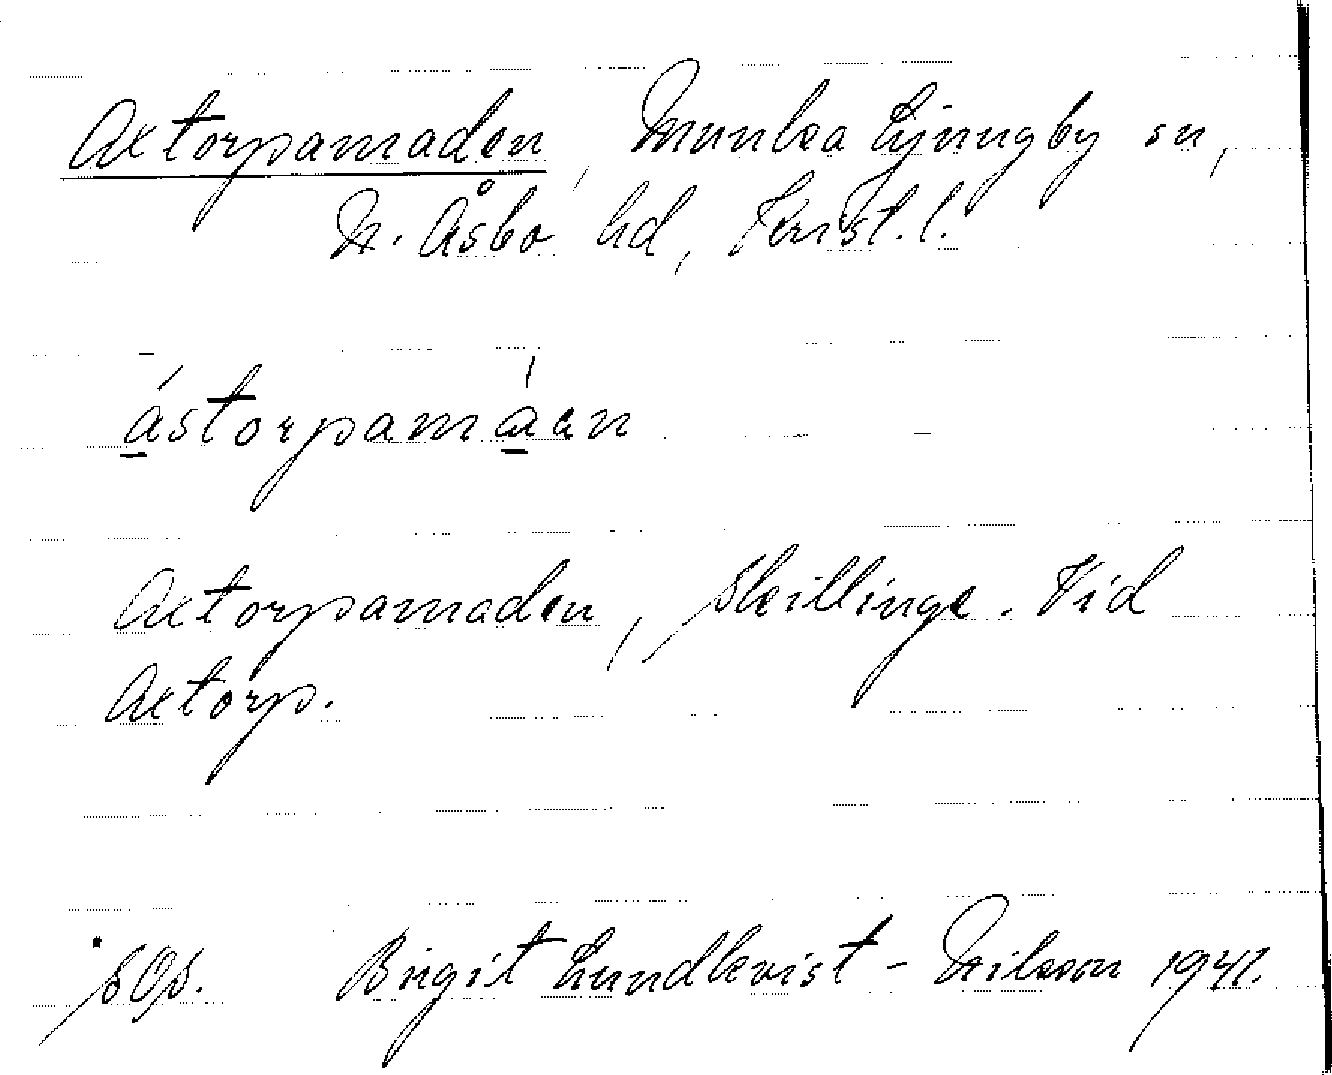 Axtorpamaden, Munka Ljungby sn,
N. Åsbo hd, Krist. l.
ástorpamáen
Axtorpamaden, Skillinge. Vid
Axtorp.
SOS. Birgit Lundkvist - Nilsson 1941.